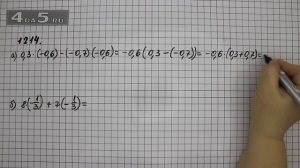 4DA5.RU
1214.
а) 0,3·(-0,6)-(-0,7)·(-0,6)= -0,6(0,3-(-0,7))= -0,6·(0,3+0,7)=
б) 8(-1/3)+7(-1/3)=